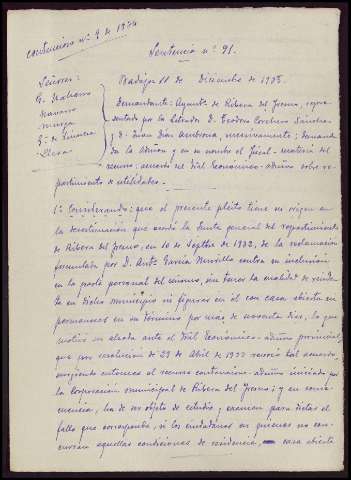 Contencioso nº 9 de 1934
Sentencia nº 91.
Señores:
Navarro
Murga
Gª de Valencia
Badajoz 18 de Diciembre de 1935.
Demandante: Ayuntº de Ribera del Fresno, repre-
sentado por el Letrado D. Teodoro Corchero Sánchez
y D. Juan Díaz Ambrona, sucesivamente; demanda-
da la Admon y en su nombre el Fiscal. — materia del
recurso: acuerdo del Tral Económico-admvo sobre re-
partimiento de utilidades.
1º Considerando: que el presente pleito tiene su origen en
la desestimación que acordó la Junta general del repartimiento
de Ribera del Fresno, en 10 de Septbre de 1932, de la reclamación
formulada por D. Antº García Murillo contra su inclusión
en la parte personal del mismo, sin tener la cualidad de residen-
te en dicho municipio ni figurar en él con casa abierta ni
permanecer en su término por más de noventa días, lo que
motivó su alzada ante el Tral Económico-admvo provincial,
que por resolución de 29 de Abril de 1933 revocó tal acuerdo,
surgiendo entonces el recurso contencioso-admvo iniciado por
la Corporación municipal de Ribera del Fresno; y en conse-
cuencia, ha de ser objeto de estudio y examen para dictar el
fallo que corresponda, si los ciudadanos en quienes no con-
curran aquellas condiciones de residencia, casa abierta